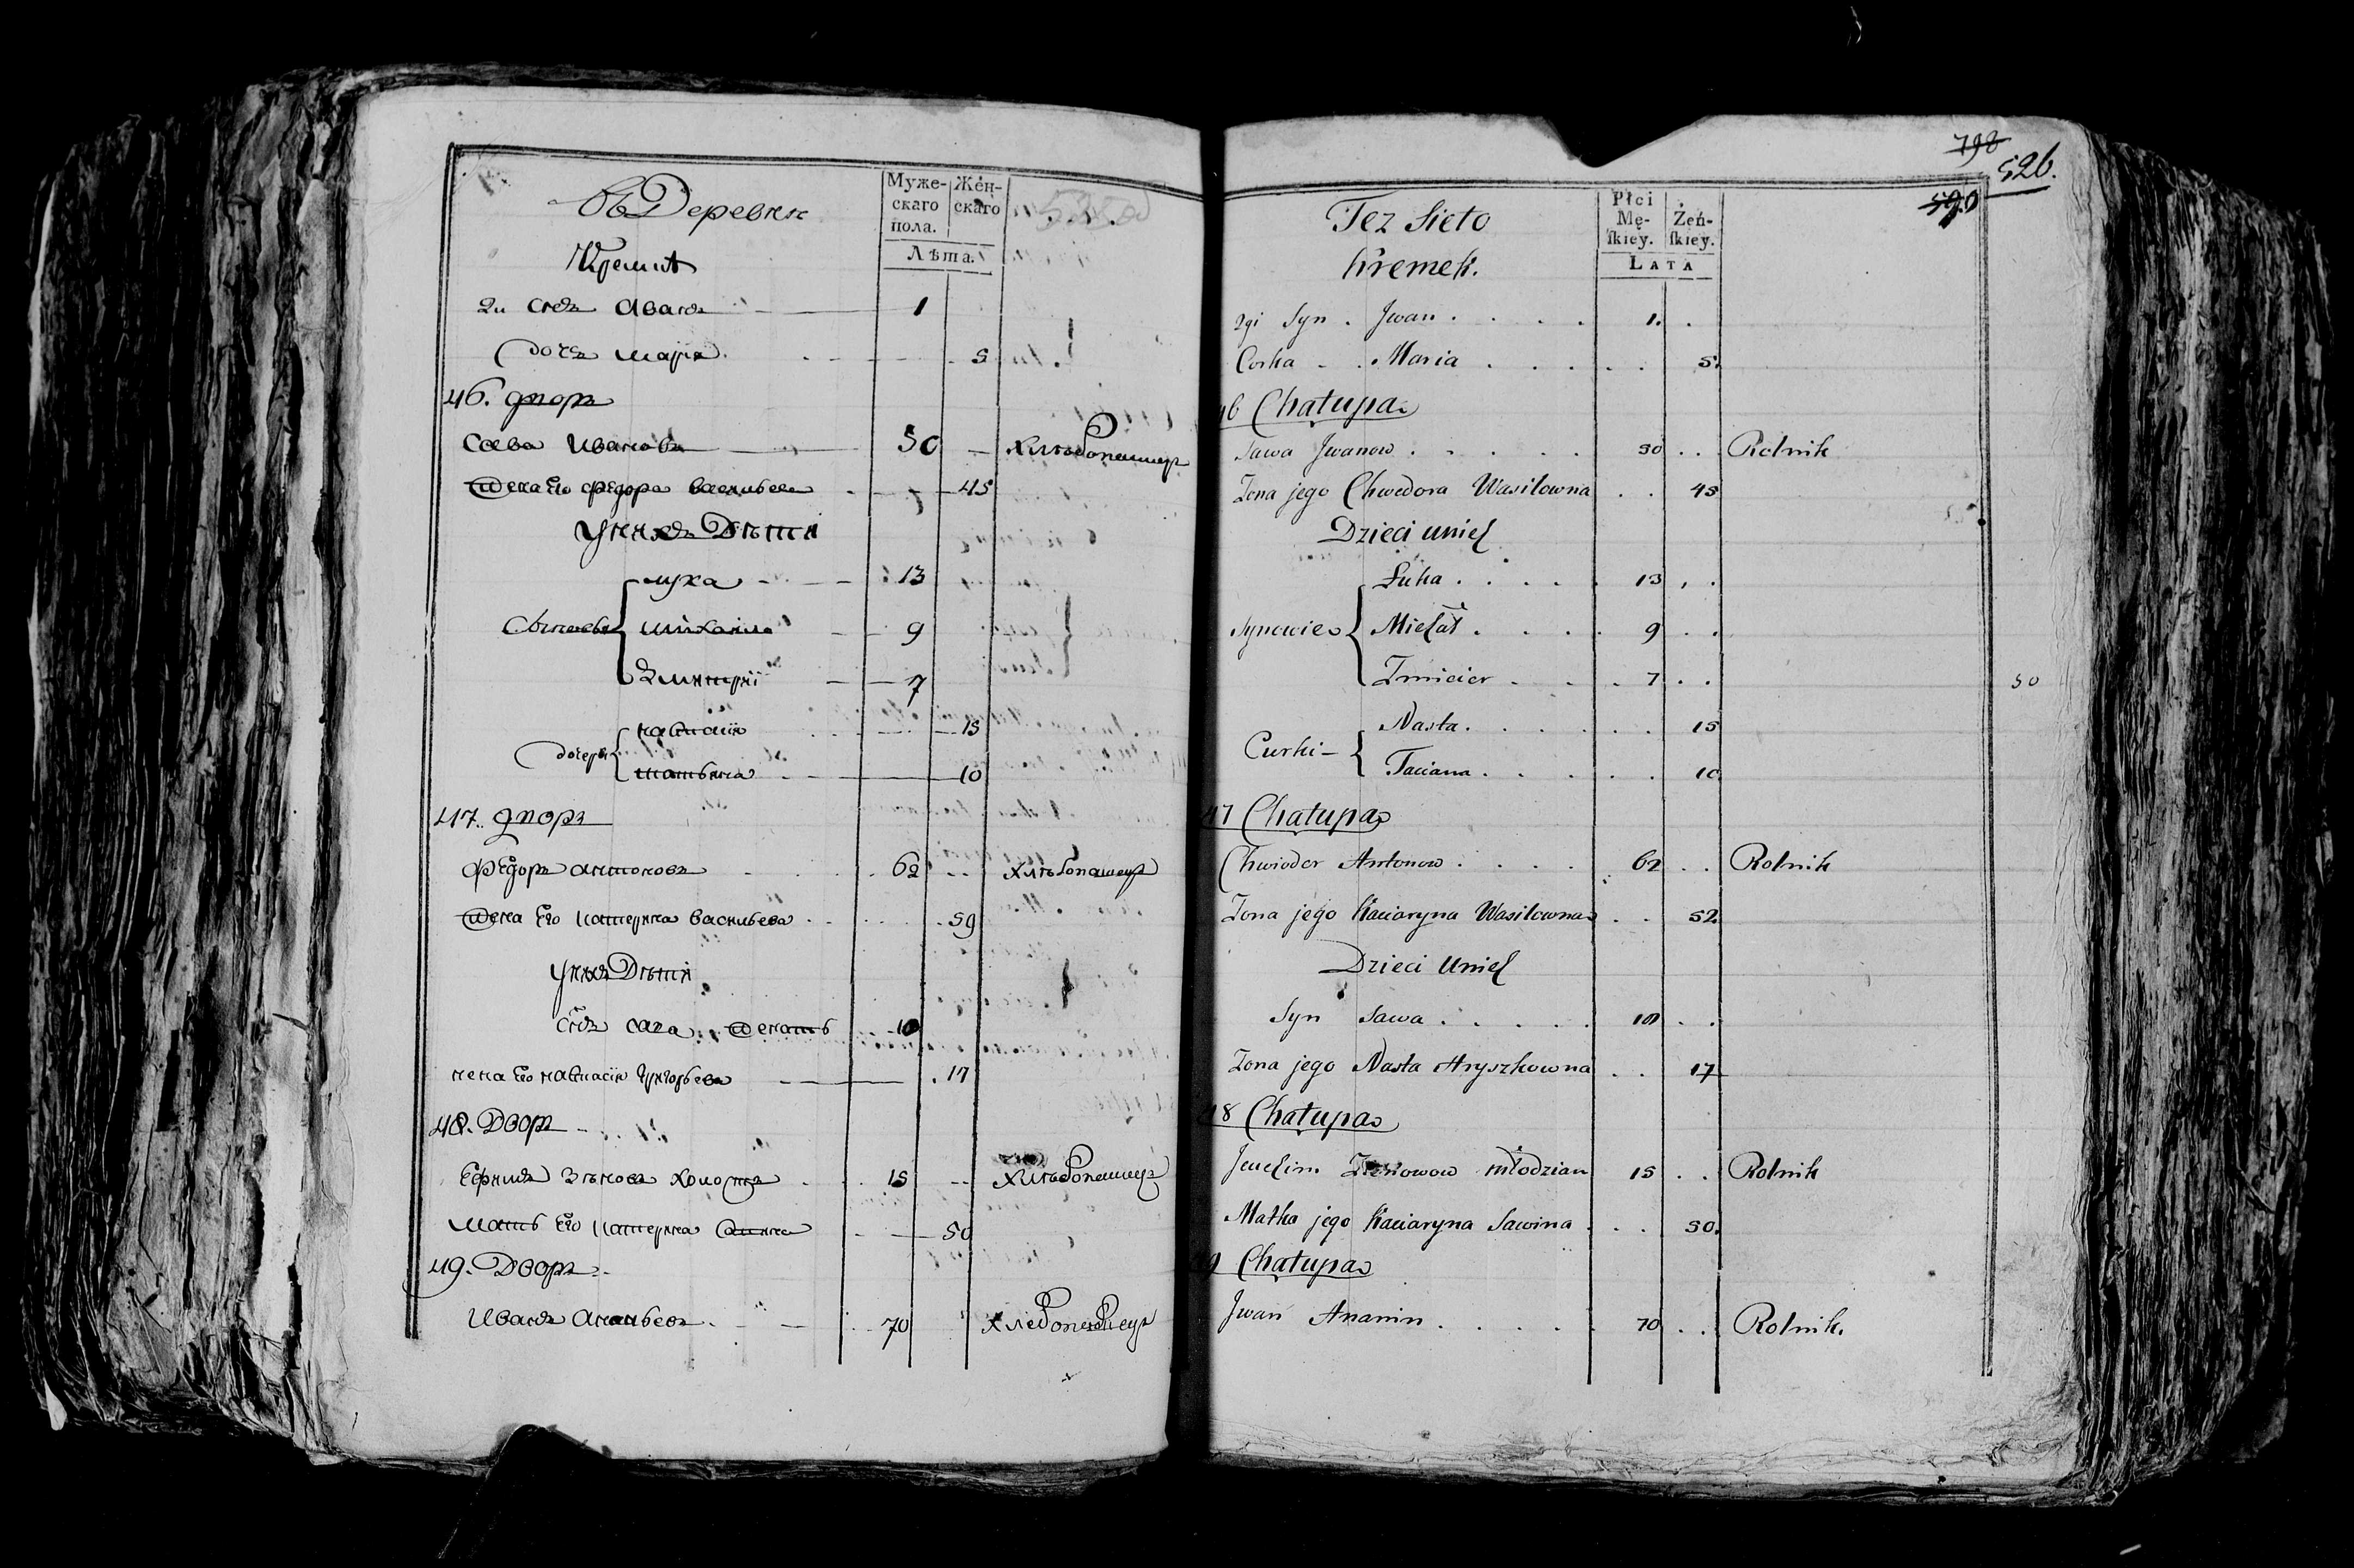 въ Деревни
Муже-
скаго
пола.
Жен-
скаго
Лѣта.
Кремнѣ
2й снъ Иванъ 1
дочь марїя 5
46. дворъ
Савва Ивановъ 50 хлѣбопашецъ
жена Его Федора Васильева 45
У них Дѣти
Сыновья
лука 13
михаило 9
Змитрїй 7
дочери
настасїя 15
татьяна 10
47. дворъ
Федоръ антоновъ 62 хлѣбопашецъ
жена Его катерина Васильева 59
У нихъ Дѣти
снъ сава женатъ 18
жена Его настасїя григорьева 17
48. Дворъ
Ефимъ Зѣновъ холостъ 15 хлѣбопашецъ
мать Его катерина Савина 50
49. Дворъ
Иванъ Ананьевъ 70 хлебопашецъ
798
526.
590
Też Sieło
Kremek.
Płci
Mę-
ſkiey.
Żeń-
ſkiey.
Lata
2gi Syn Jwan 1.
Corka Maria 5.
46 Chałupa
Sawa Jwanow 50 Rolnik
Żona jego Chwedora Wasilowna 45
Dzieci unich
Synowie
Łuka 13
Michał 9
Zmicier 7
50
Curki
Nasta 15
Taciana 10
47 Chałupa
Chwiodor Antonow 62 Rolnik
Żona jego Kaciaryna Wasilowna 52.
Dzieci Unich
Syn Sawa 18
Żona jego Nasta Hryszkowna 17
48 Chałupa
Jeuchim Zienowow młodzian 15 Rolnik
Matka jego Kaciaryna Sawina 50.
49 Chałupa
Jwan Ananin 70 Rolnik.